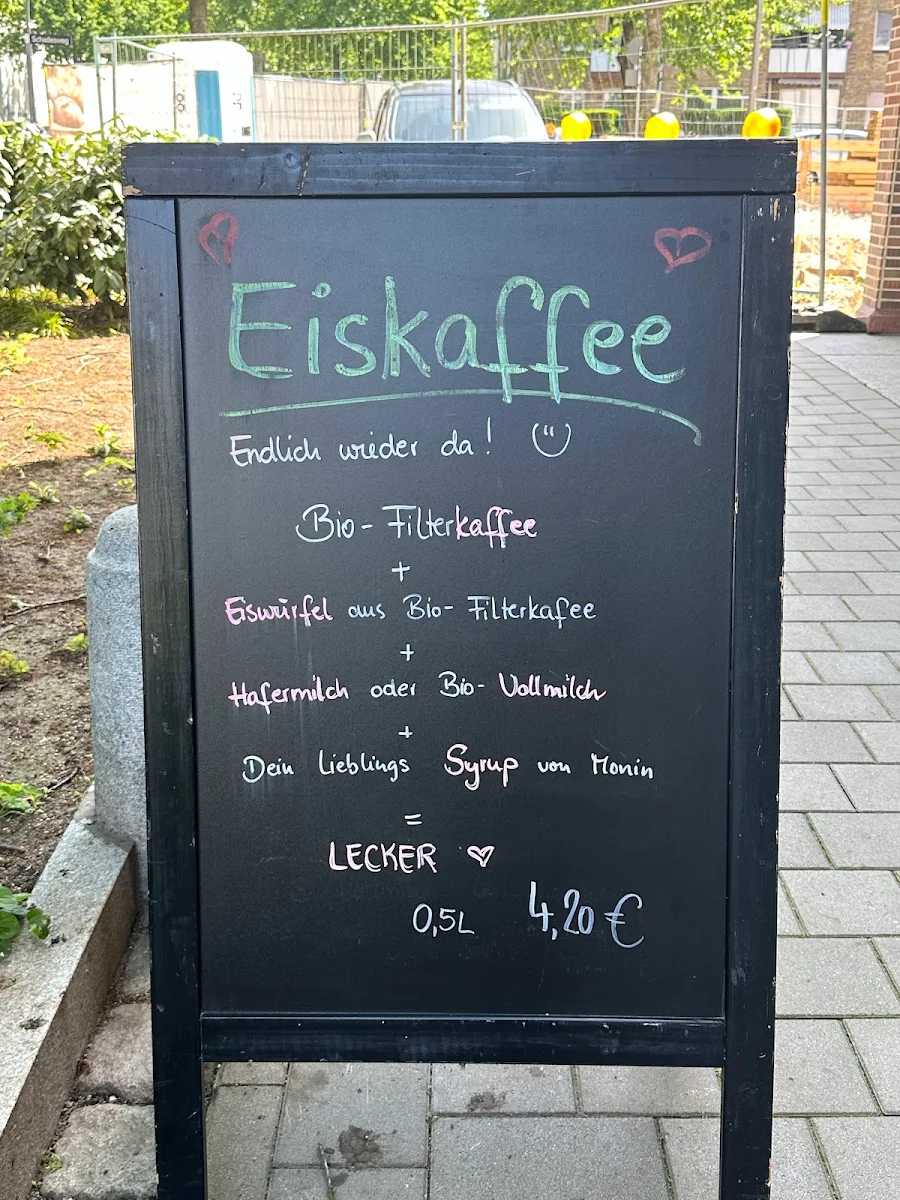 Schadesweg
Eiskaffee
Endlich wieder da!
Bio-Filterkaffee
+
Eiswürfel aus Bio-Filterkafee
+
Hafermilch oder Bio-Vollmilch
+
Dein Lieblings Syrup von Monin
=
LECKER
0,5L 4,20 €